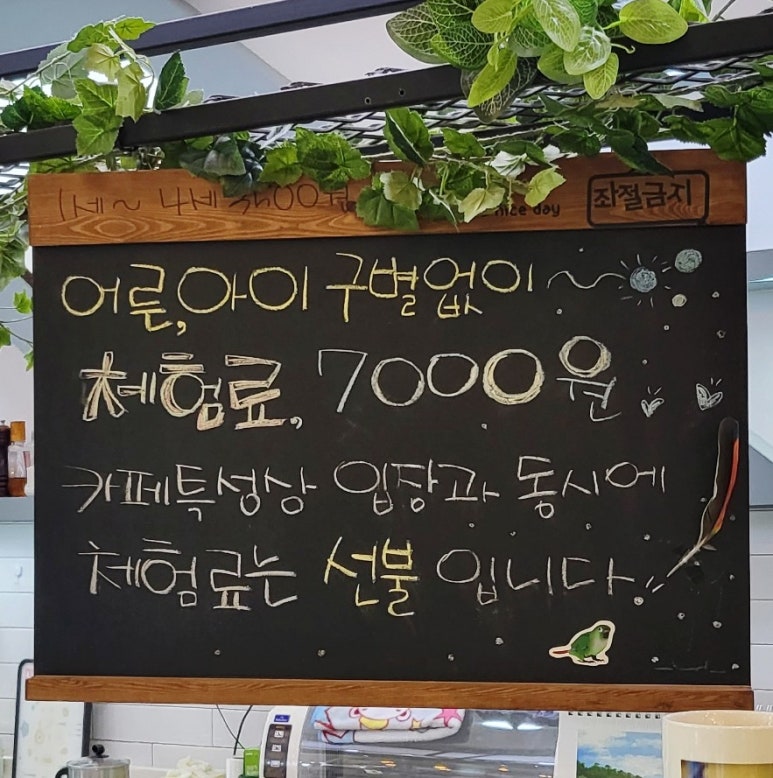 1세~ 4세 3500원
nice day
좌절금지
어른,아이 구별없이~
체험료, 7000원
카페특성상 입장과 동시에
체험료는 선불 입니다.